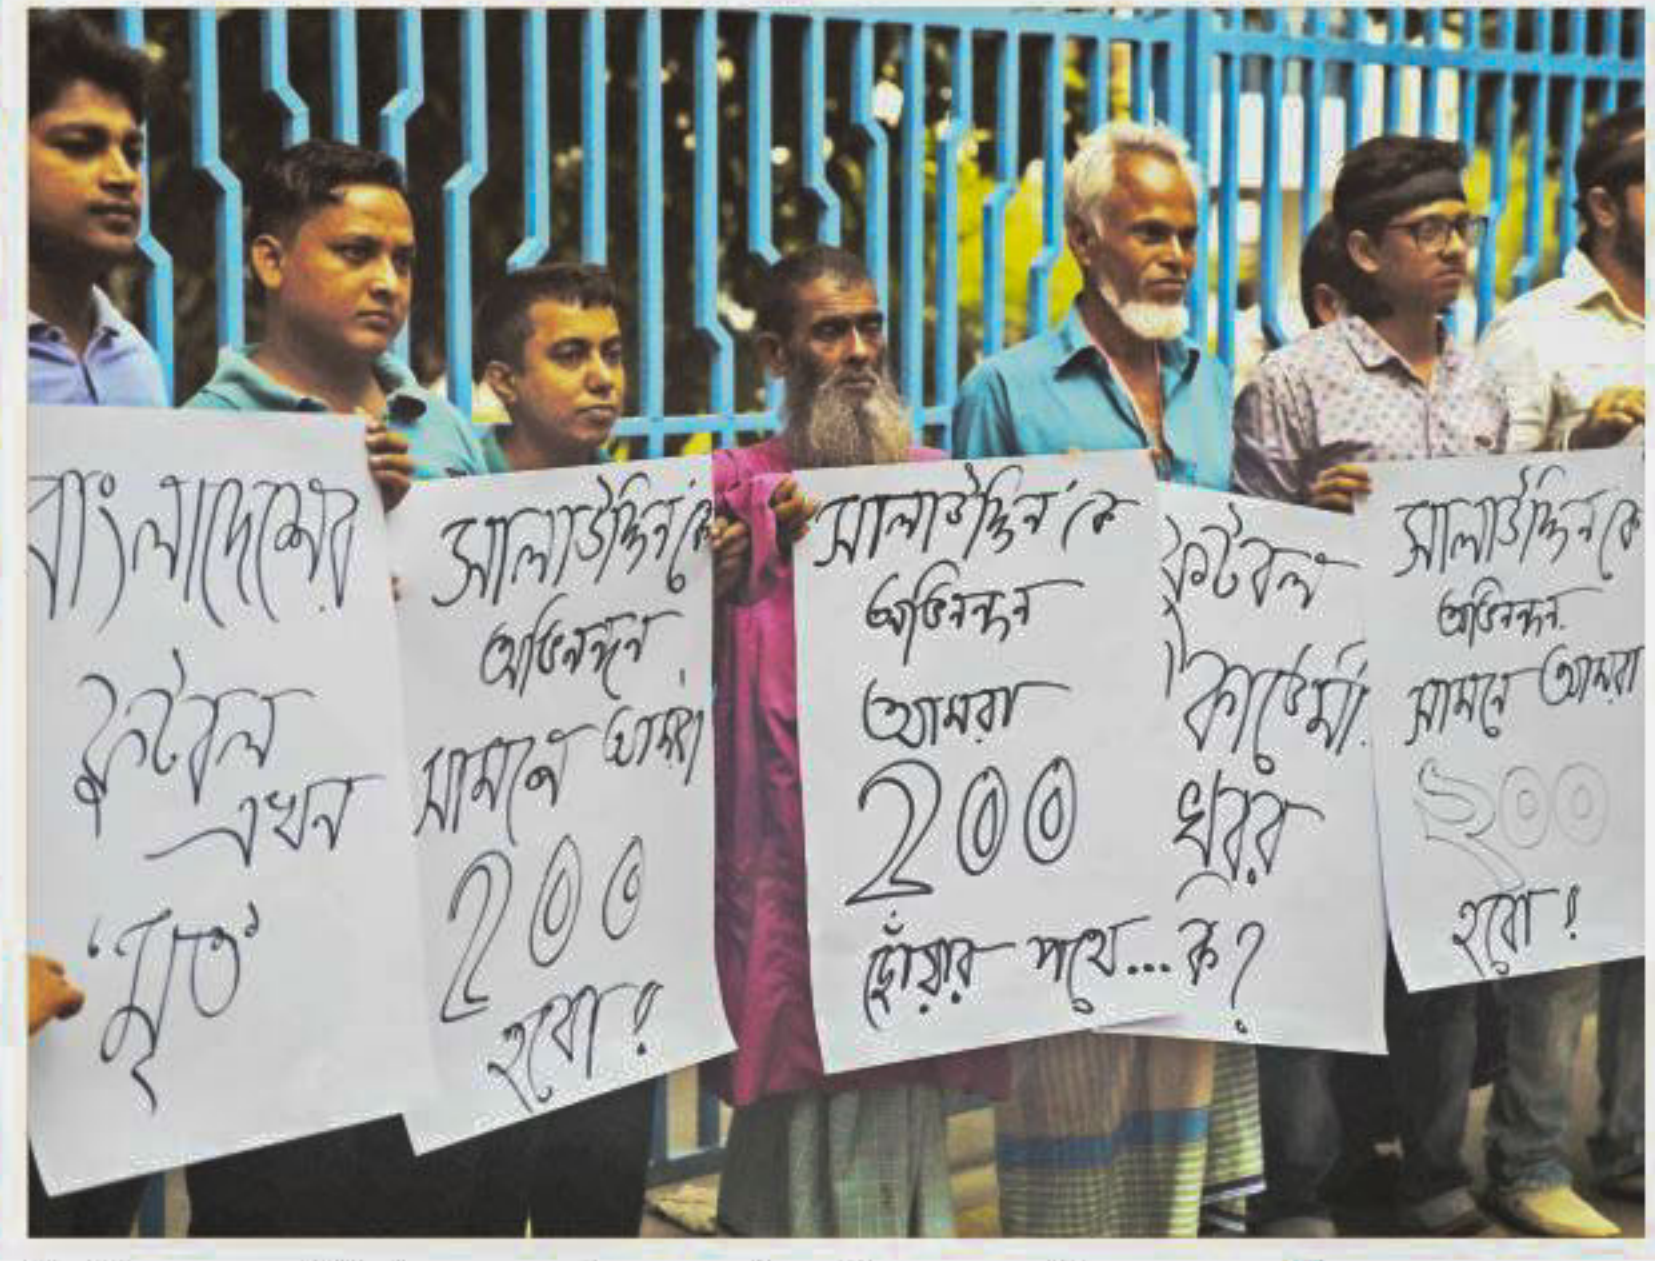 বাংলাদেশের
ফুটবল
এখন
'মৃত'
সালাউদ্দিন'কে
অভিনন্দন
সামনে আমরা
২০০
হবো!
সালাউদ্দিন'কে
অভিনন্দন
আমরা
২০০
ছোঁয়ার পথে...
ফুটবল
একাডেমী
খবর
কি?
সালাউদ্দিনকে
অভিনন্দন
সামনে আমরা
২০০
হবো!